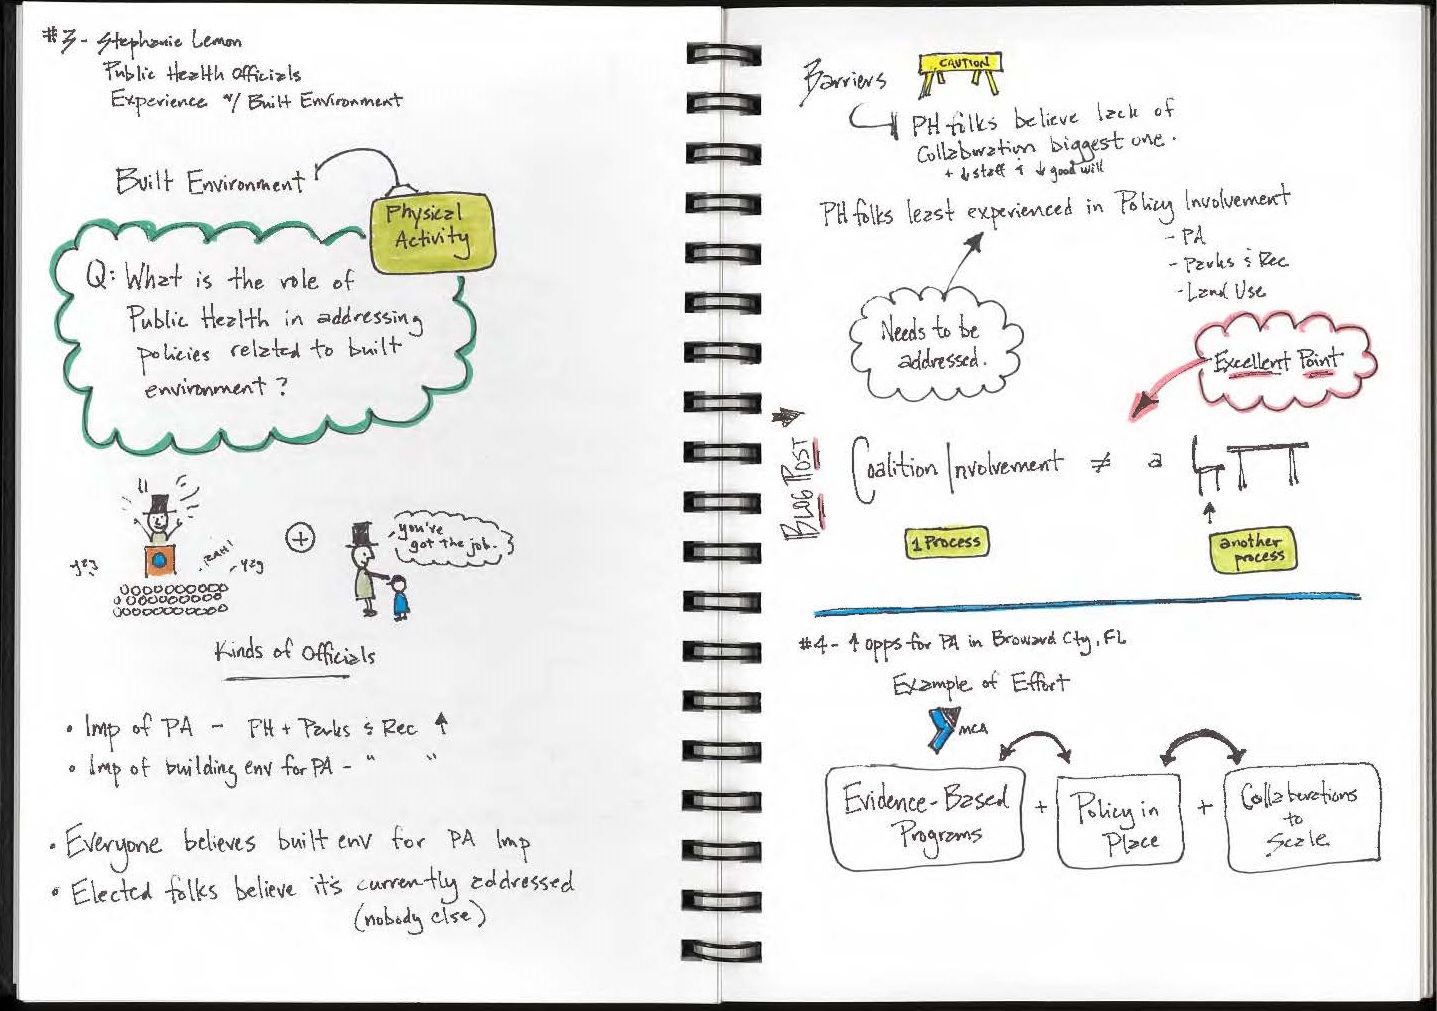 #3 - Stephanie Lemon
Public Health Officials
Experience w/ Built Environment
Built Environment
Physical
Activity
Q: What is the role of
Public Health in addressing
policies related to built
environment?
yay
RAH!
yay
+
you've
got the job.
Kinds of Officials
• Imp of PA - PH + Parks & Rec ↑
• Imp of building env for PA - " "
• Everyone believes built env for PA Imp
• Elected folks believe it's currently addressed
(nobody else)
Barriers
CAUTION
PH folks believe lack of
Collaboration biggest one.
+ ↓ staff & ↓ good will
PH folks least experienced in Policy Involvement
- PA
- Parks & Rec
- Land Use
Needs to be
addressed.
Excellent Point
BLOG POST
Coalition Involvement ≠ a
1 Process
another
process
#4 - ↑ opps for PA in Broward Cty, FL
Example of Effort
MCA
Evidence-Based
Programs
+
Policy in
Place
+
Collaborations
to
Scale.